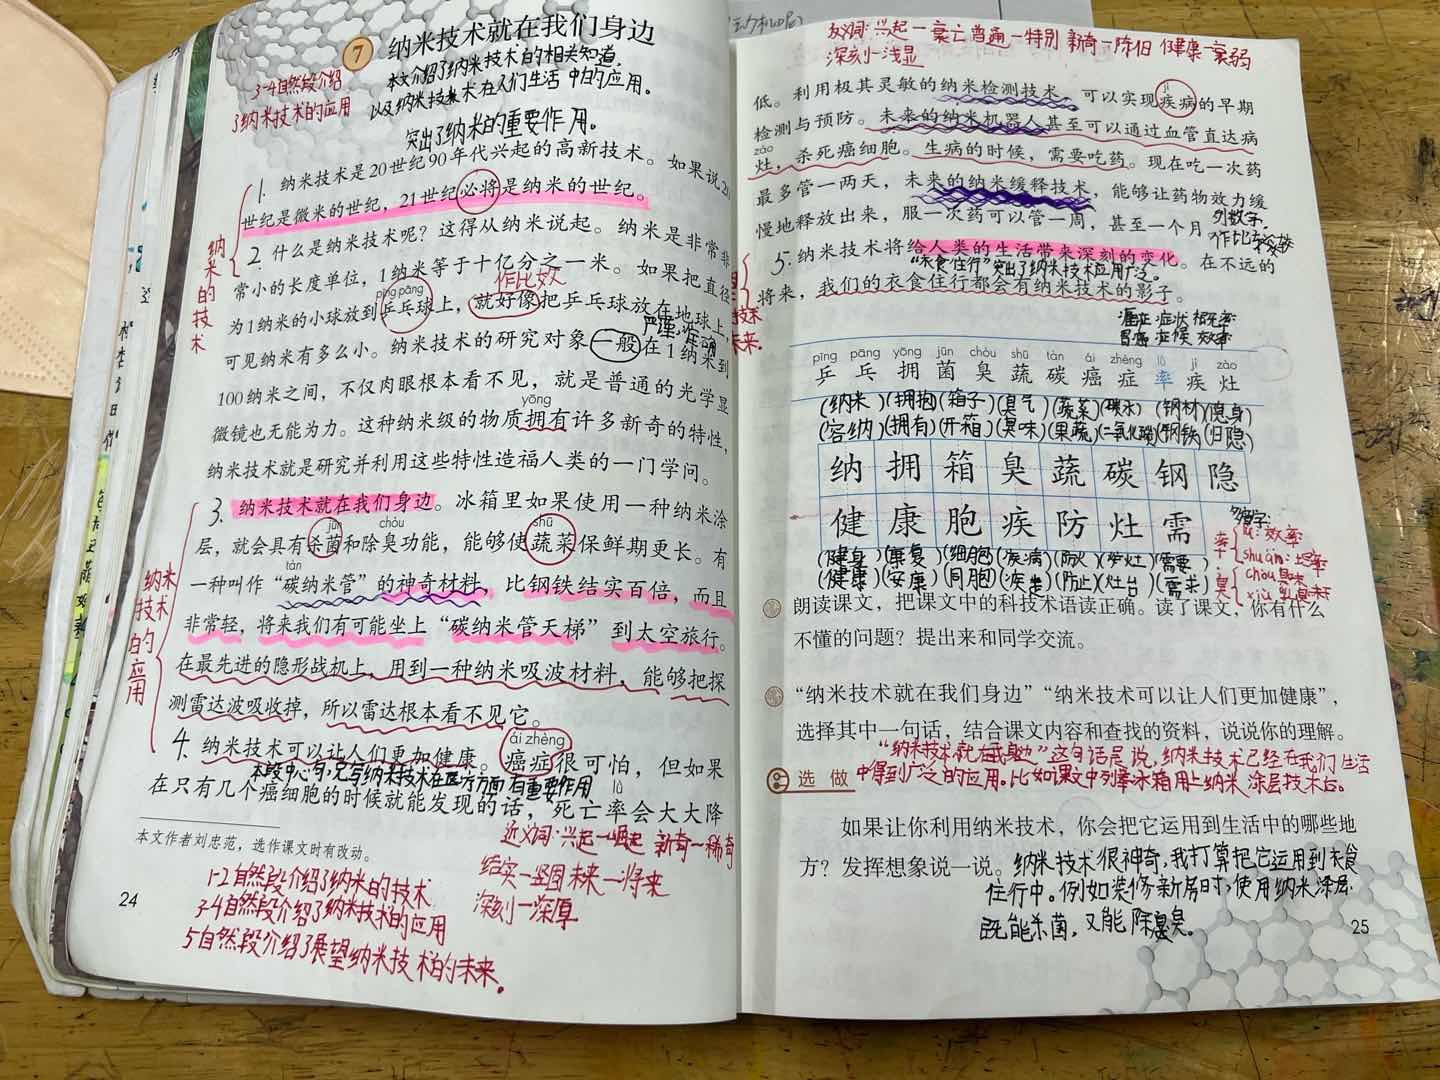 7 纳米技术就在我们身边
本文介绍了纳米技术的相关知道,
以及纳米技术在人们生活中的应用。
突出了纳米的重要作用。
3-4自然段介绍
了纳米技术的应用
1. 纳米技术是20世纪90年代兴起的高新技术。如果说20
世纪是微米的世纪，21世纪必将是纳米的世纪。
2. 什么是纳米技术呢？这得从纳米说起。纳米是非常非
常小的长度单位，1纳米等于十亿分之一米。如果把直径
作比较
pīng pāng
为1纳米的小球放到乒乓球上，就好像把乒乓球放在地球上，
可见纳米有多么小。纳米技术的研究对象一般在1纳米到
100纳米之间，不仅肉眼根本看不见，就是普通的光学显
yōng
微镜也无能为力。这种纳米级的物质拥有许多新奇的特性，
纳米技术就是研究并利用这些特性造福人类的一门学问。
纳米的技术
3. 纳米技术就在我们身边。冰箱里如果使用一种纳米涂
jūn chòu shū
层，就会具有杀菌和除臭功能，能够使蔬菜保鲜期更长。有
tàn
一种叫作“碳纳米管”的神奇材料，比钢铁结实百倍，而且
非常轻，将来我们有可能坐上“碳纳米管天梯”到太空旅行。
在最先进的隐形战机上，用到一种纳米吸波材料，能够把探
测雷达波吸收掉，所以雷达根本看不见它。
ái zhèng
4. 纳米技术可以让人们更加健康。癌症很可怕，但如果
本段中心句,写纳米技术在医疗方面有重要作用
lǜ
在只有几个癌细胞的时候就能发现的话，死亡率会大大降
纳米技术的应用
本文作者刘忠范，选作课文时有改动。
近义词:兴起一崛起 新奇一稀奇
结实一坚固 未来一将来
深刻一深厚
1-2自然段介绍了纳米的技术
3-4自然段介绍了纳米技术的应用
5自然段介绍了展望纳米技术的未来。
24
反义词:兴起一衰亡 普通一特别 新奇一陈旧 健康一衰弱
深刻一浅显
jí
低。利用极其灵敏的纳米检测技术，可以实现疾病的早期
检测与预防。未来的纳米机器人甚至可以通过血管直达病
zào
灶，杀死癌细胞。生病的时候，需要吃药。现在吃一次药
最多管一两天，未来的纳米缓释技术，能够让药物效力缓
慢地释放出来，服一次药可以管一周，甚至一个月
列数字,
作比较
5. 纳米技术将给人类的生活带来深刻的变化。在不远的
“衣食住行”突出了纳米技术应用广泛。
将来，我们的衣食住行都会有纳米技术的影子。
症状 概率
症候 效率
pīng pāng yōng jūn chòu shū tàn ái zhèng lǜ jí zào
乒 乓 拥 菌 臭 蔬 碳 癌 症 率 疾 灶
(纳米)(拥抱)(箱子)(臭气)(蔬菜)(碳水)(钢材)(隐身)
(容纳)(拥有)(开箱)(臭味)(果蔬)(二氧化碳)(钢铁)(归隐)
纳 拥 箱 臭 蔬 碳 钢 隐
健 康 胞 疾 防 灶 需
(健身)(康复)(细胞)(疾病)(防火)(炉灶)(需要)
(健康)(安康)(同胞)(疾走)(防止)(灶台)(需求)
多音字:
率 lǜ:效率
shuài:
臭 chòu
xiù
朗读课文，把课文中的科技术语读正确。读了课文，你有什么
不懂的问题？提出来和同学交流。
“纳米技术就在我们身边”“纳米技术可以让人们更加健康”，
选择其中一句话，结合课文内容和查找的资料，说说你的理解。
“纳米技术就在我身边”这句话是说,纳米技术已经在我们生活
中得到广泛的应用。比如课文中列举冰箱用上纳米涂层技术后。
选做
如果让你利用纳米技术，你会把它运用到生活中的哪些地
方？发挥想象说一说。纳米技术很神奇,我打算把它运用到衣食
住行中。例如装修新房时,使用纳米涂层
既能杀菌,又能除臭。
25